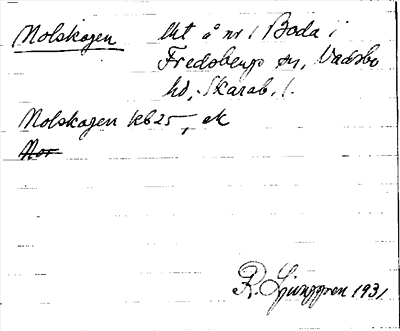 Nolskogen Utt å nr 1 Boda i
Fredsbergs sn, Vadsbo
hd, Skarab. l.
Nolskogen kb 25–, ek
Nor
R. Ljunggren 1931